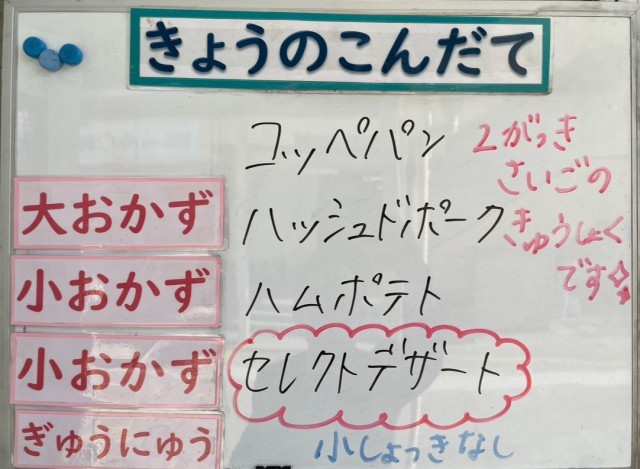 きょうのこんだて
コッペパン
2がっき
さいごの
きゅうしょく
です
大おかず ハッシュドポーク
小おかず ハムポテト
小おかず セレクトデザート
ぎゅうにゅう
小しょっきなし